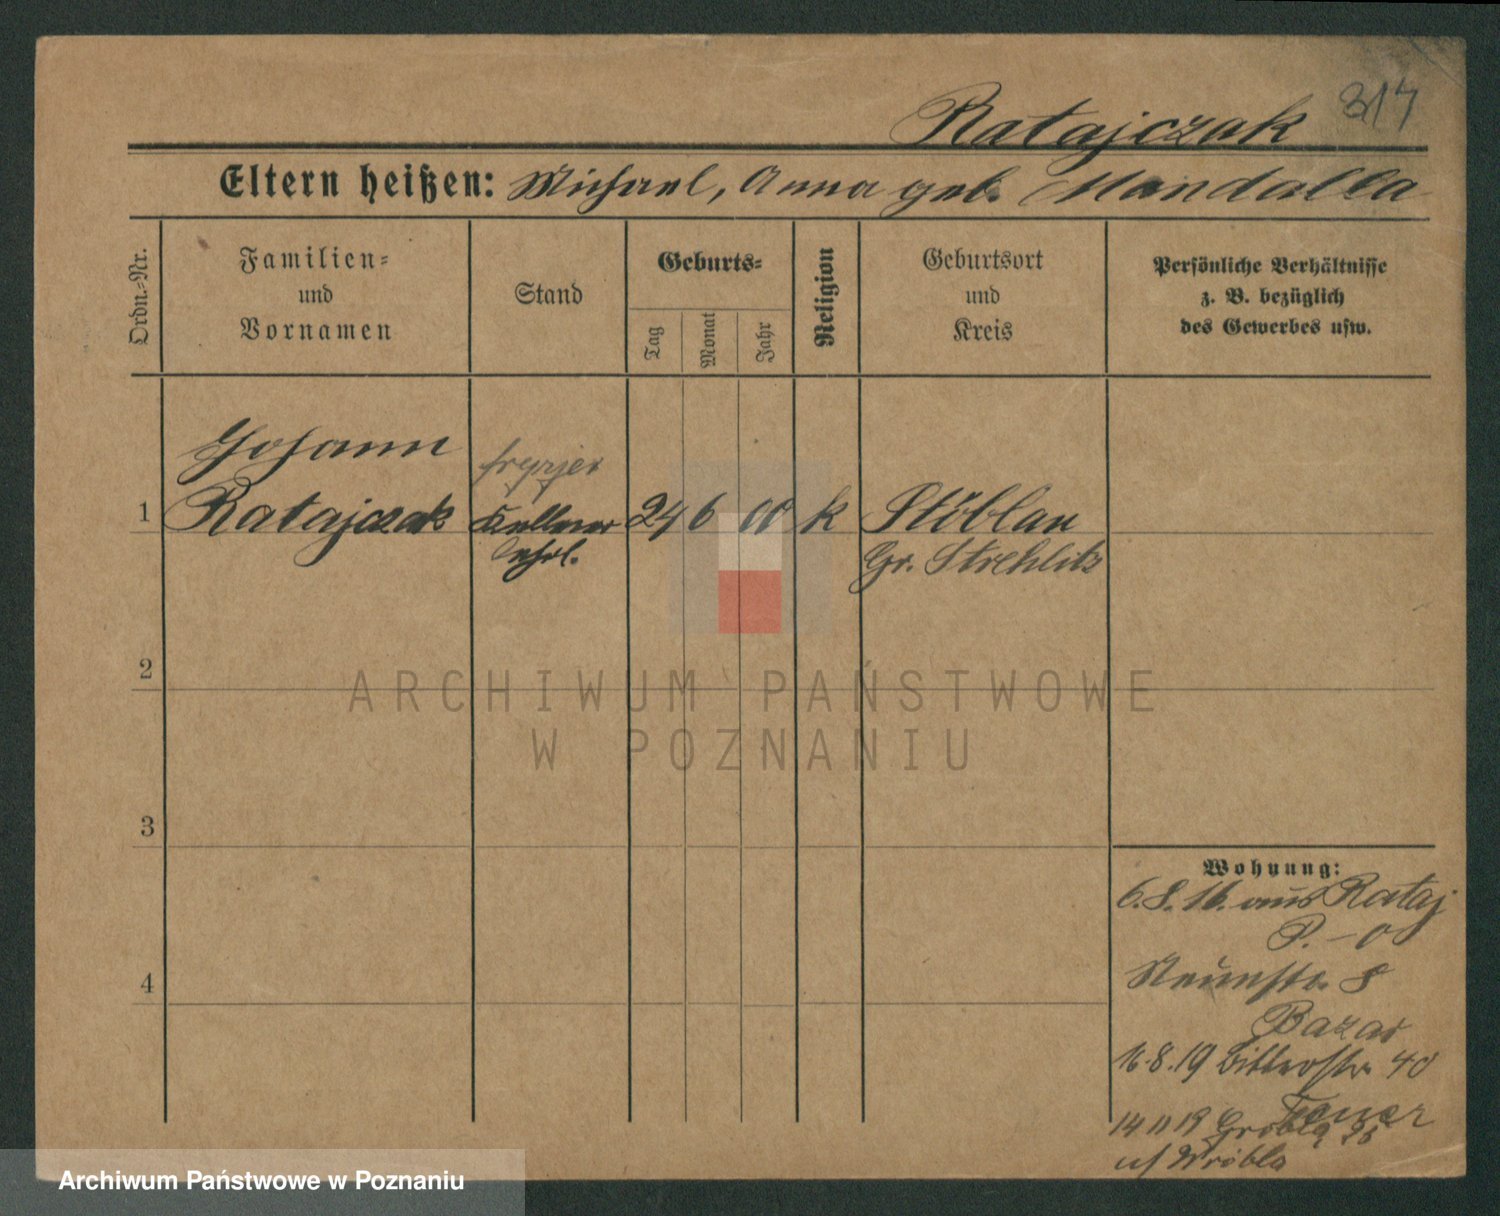 317
Ratajczak
Eltern heißen: Michael, Anna geb. Mandalla
Ordn.-Nr.
Familien-
und
Vornamen
Stand
Geburts-
Tag
Monat
Jahr
Religion
Geburtsort
und
Kreis
Persönliche Verhältnisse
z. B. bezüglich
des Gewerbes usw.
Johann
fryzjer
1 Ratajczak Kellner 24 6 00 k Stöblau
lehrl. Gr. Strehlitz
2
ARCHIWUM PAŃSTWOWE
W POZNANIU
3
Wohnung:
6.8.16. aus Rataj
P. - O
4
Neuestr. 8
Bazar
16.8.19 Bitterstr. 40
14 11 19 Grobla 26
u/ Wróbla
Archiwum Państwowe w Poznaniu